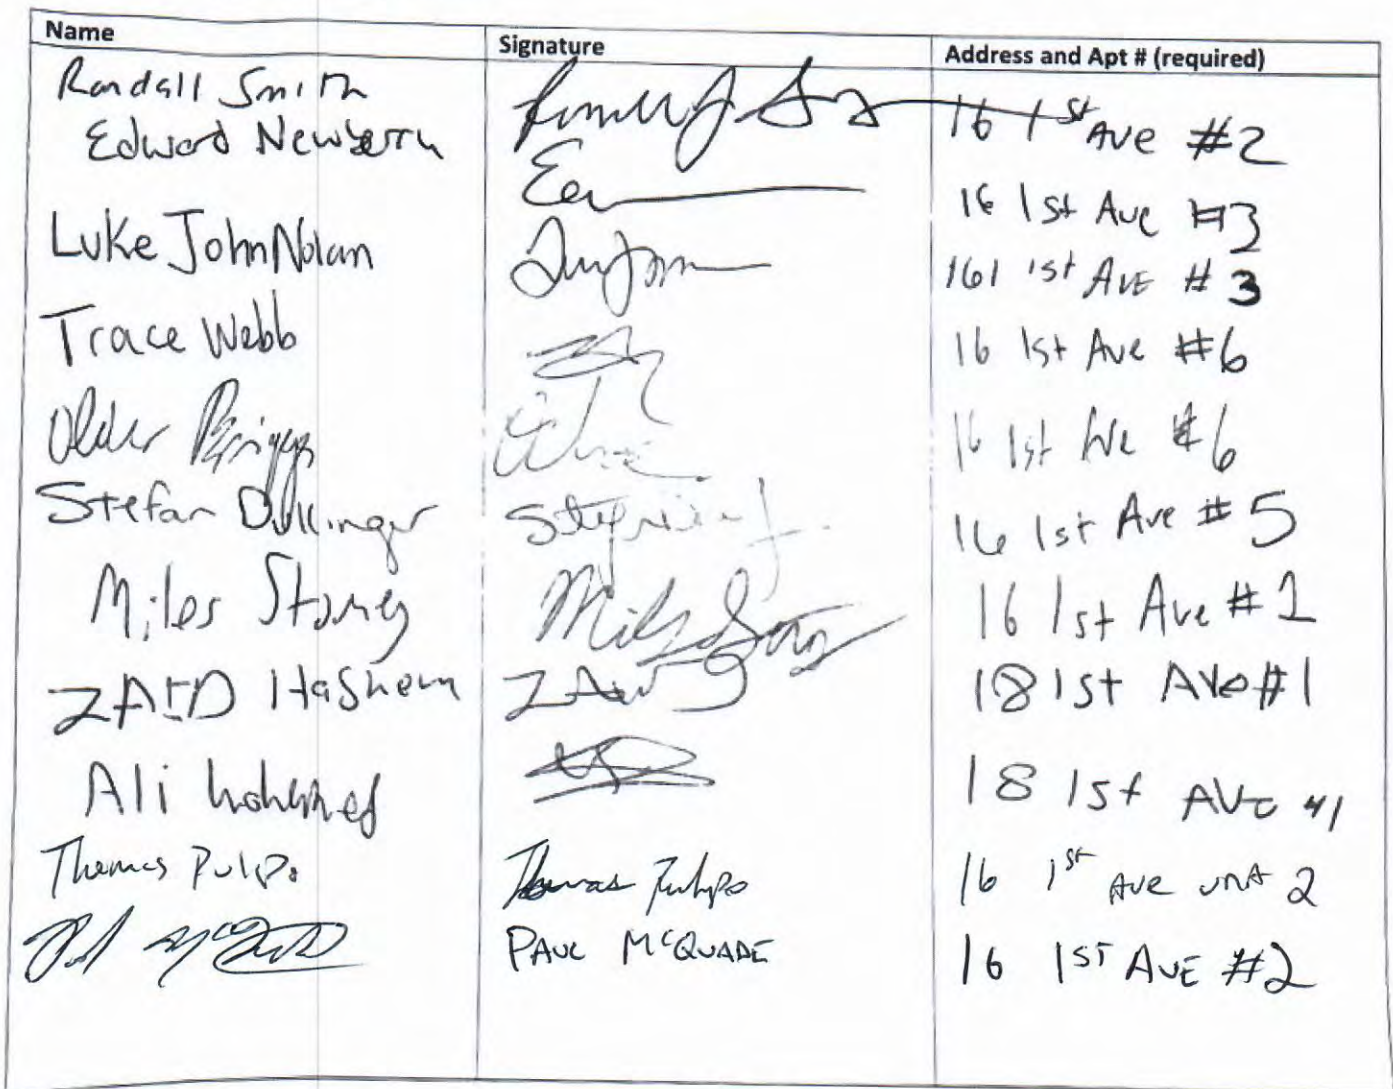 Name Signature Address and Apt # (required)
Randall Smith 16 1st Ave #2
Edward Newberry
16 1st Ave #3
Luke John Nolan 161 1st AVE #3
Trace Webb 16 1st Ave #6
Briggs 16 1st Ave #6
Stefan 16 1st Ave #5
Miles Storey Miles Storey 16 1st Ave #1
ZAID Hashem ZAID 18 1st Ave #1
Ali 18 1st AVE #1
Thomas Pulpo Thomas Pulpo 16 1st Ave unit 2
PAUL McQUADE 16 1ST AVE #2